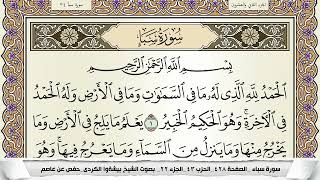 الجزء الثاني والعشرون
سورة سبأ ٣٤
سُورَةُ سَبَإٍ
بِسْمِ اللَّهِ الرَّحْمَٰنِ الرَّحِيمِ
الْحَمْدُ لِلَّهِ الَّذِي لَهُ مَا فِي السَّمَاوَاتِ وَمَا فِي الْأَرْضِ وَلَهُ الْحَمْدُ
فِي الْآخِرَةِ وَهُوَ الْحَكِيمُ الْخَبِيرُ ١ يَعْلَمُ مَا يَلِجُ فِي الْأَرْضِ وَمَا
يَخْرُجُ مِنْهَا وَمَا يَنزِلُ مِنَ السَّمَاءِ وَمَا يَعْرُجُ فِيهَا وَهُوَ
سورة سباء . الصفحة ٤٢٨ . الحزب ٤٣ . الجزء ٢٢ . بصوت الشيخ بيشةوا الكردي. حفص عن عاصم